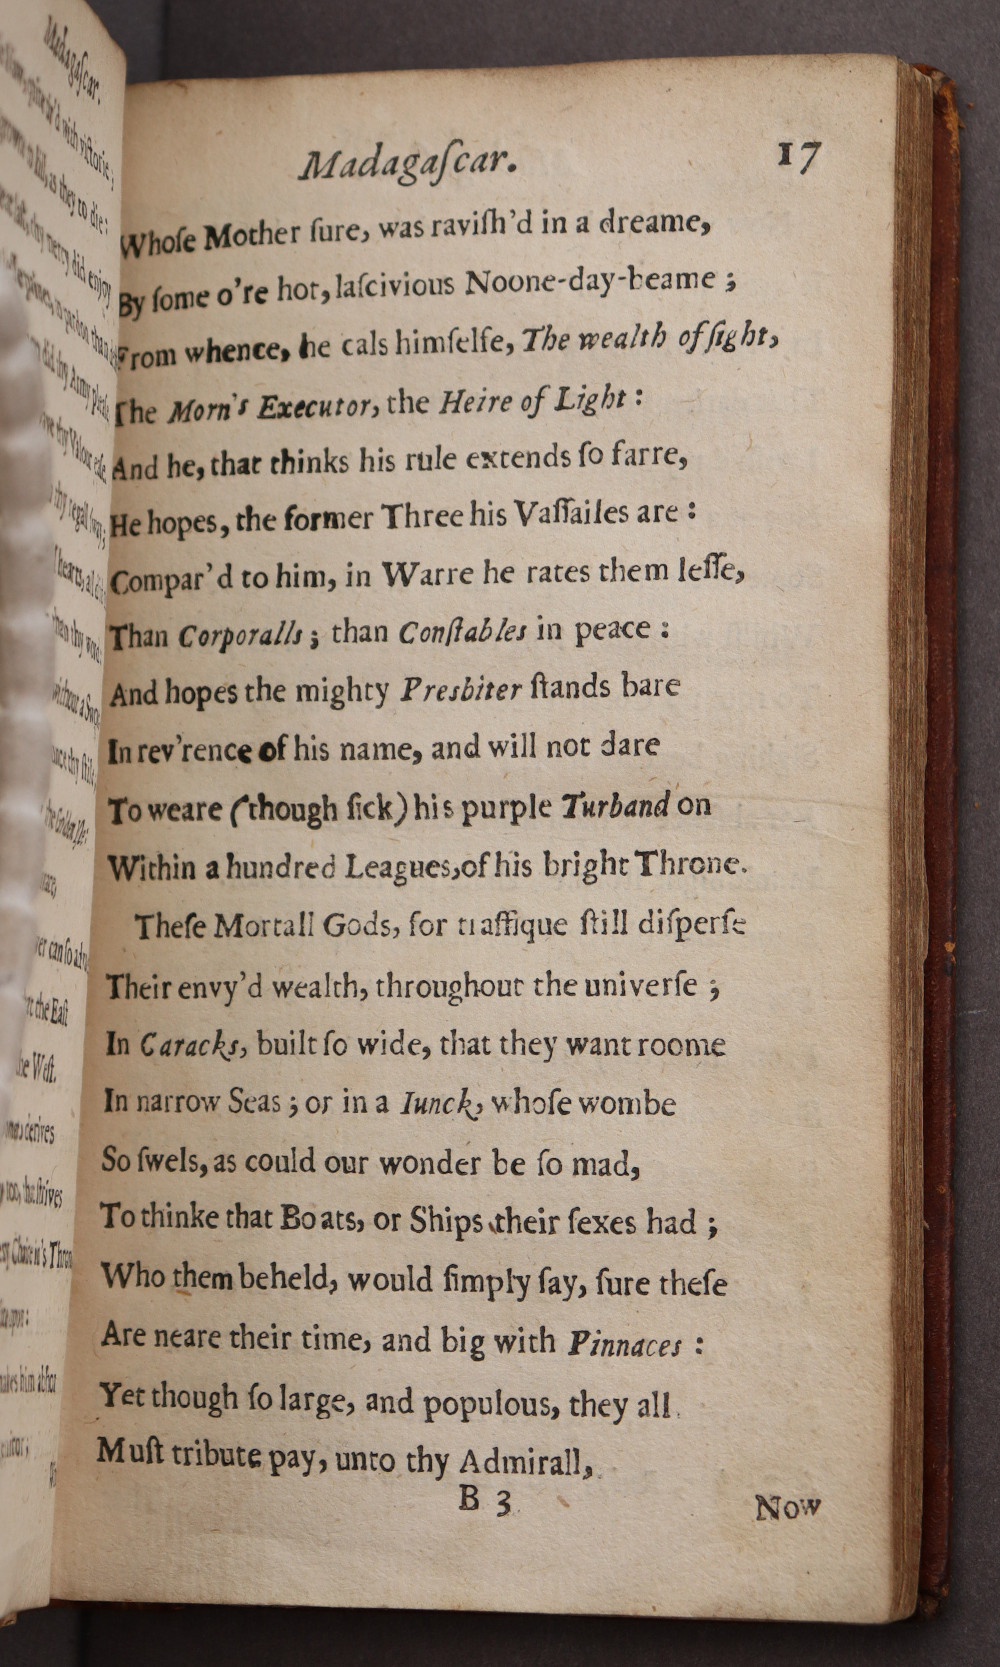 Madagaſcar.
with victorie;
as they to die:
thy mercy did enjoy
to pardon than
did thy Army
thy Valour
thy regall
hearts,
than thy
without a
thy ſtile,
the Golden
can ſo
the Eaſt
the Weſt.
derives
too, that ſtrives
makes him
Madagaſcar. 17
Whoſe Mother ſure, was raviſh'd in a dreame,
By ſome o're hot, laſcivious Noone-day-beame ;
From whence, he cals himſelfe, The wealth of ſight,
The Morn's Executor, the Heire of Light :
And he, that thinks his rule extends ſo farre,
He hopes, the former Three his Vaſſailes are :
Compar'd to him, in Warre he rates them leſſe,
Than Corporalls ; than Conſtables in peace :
And hopes the mighty Presbiter ſtands bare
In rev'rence of his name, and will not dare
To weare (though ſick) his purple Turband on
Within a hundred Leagues, of his bright Throne.
Theſe Mortall Gods, for traffique ſtill diſperſe
Their envy'd wealth, throughout the univerſe ;
In Caracks, built ſo wide, that they want roome
In narrow Seas ; or in a Iunck, whoſe wombe
So ſwels, as could our wonder be ſo mad,
To thinke that Boats, or Ships their ſexes had ;
Who them beheld, would ſimply ſay, ſure theſe
Are neare their time, and big with Pinnaces :
Yet though ſo large, and populous, they all
Muſt tribute pay, unto thy Admirall,
B 3
Now